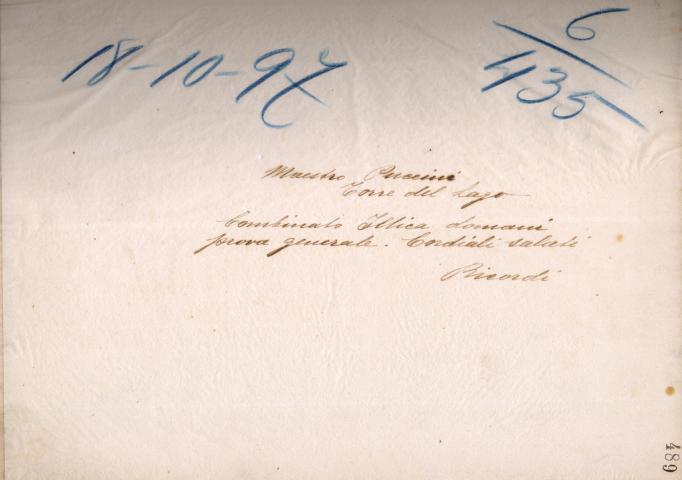 18-10-97
6
435
Maestro Puccini
Torre del Lago
Combinato Illica domani
prova generale. Cordiali saluti
Ricordi
489